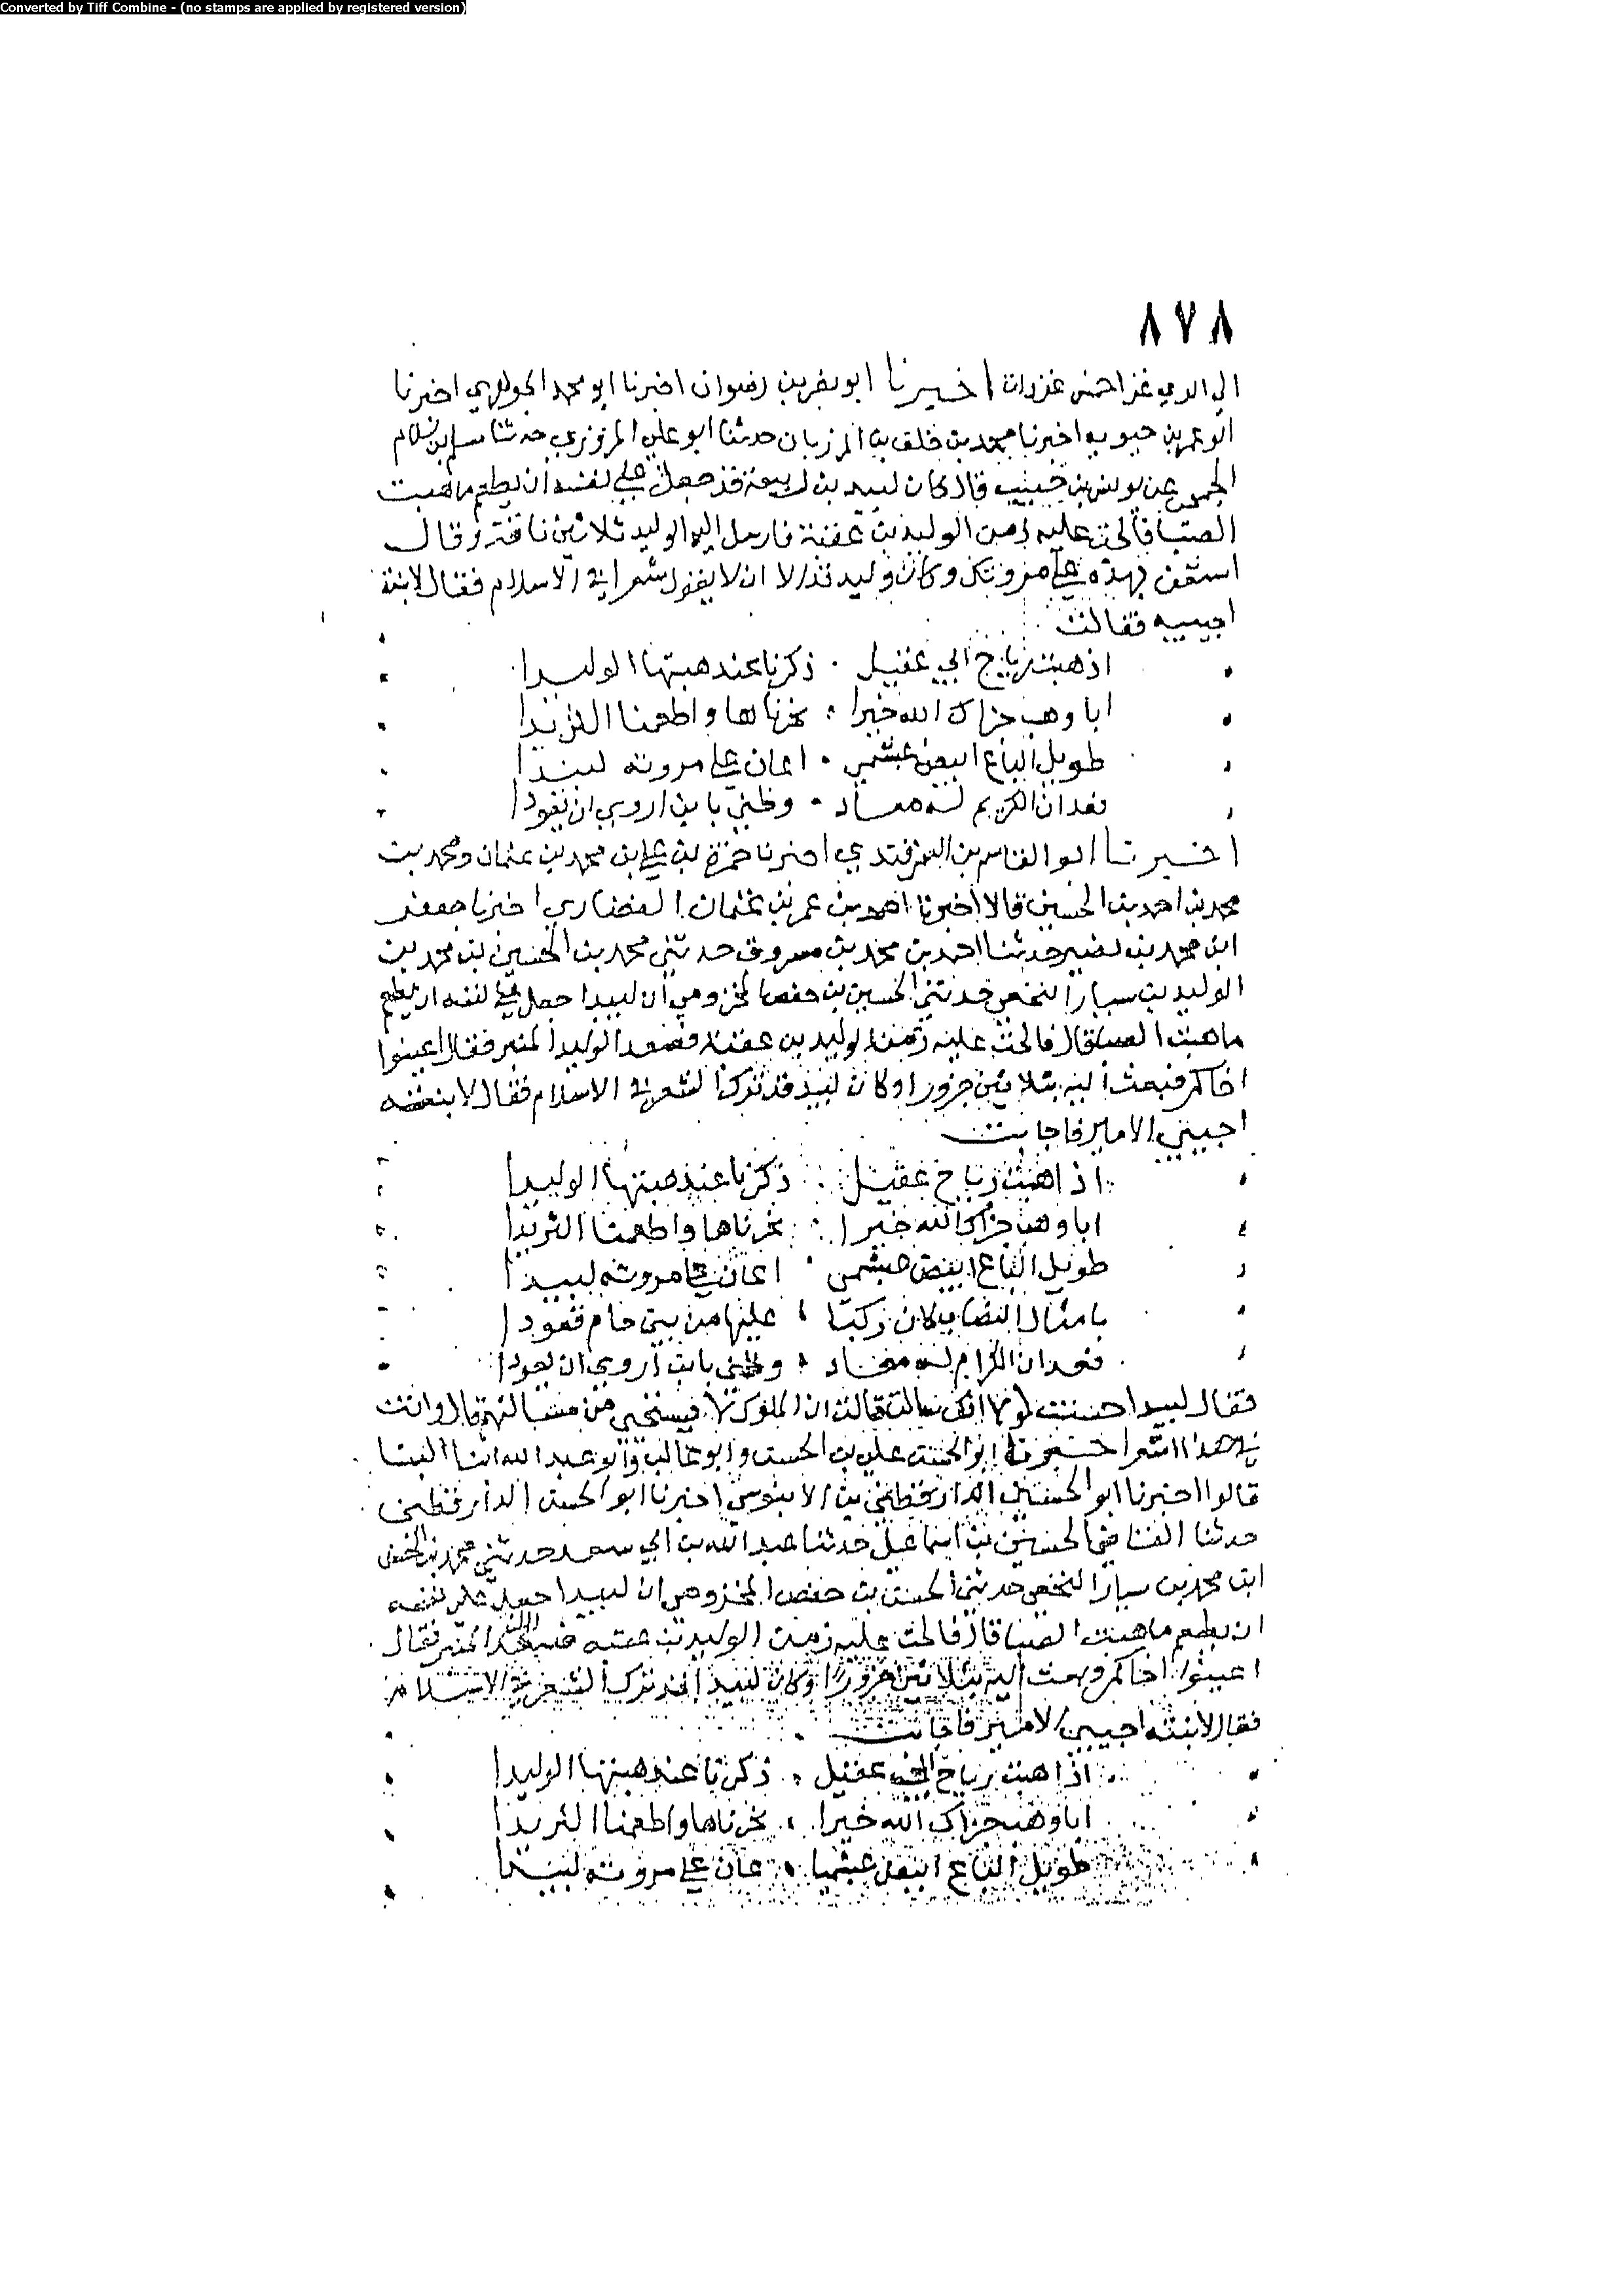 Converted by Tiff Combine - (no stamps are applied by registered version)
٨٧٨
الى الذي غزا خمس غزوات اخبرنا ابو نصر بن رضوان اخبرنا ابو محمد الجوهري اخبرنا
ابو عمر بن حيويه اخبرنا محمد بن خلف بن المرزبان حدثنا ابو علي المروزي حدثنا محمد بن سلام
الجمحي عن يونس بن حبيب قال كان لبيد بن ربيعة قد جعل على نفسه ان يطعم ما هبت
الصبا فالحت عليه زمن الوليد بن عقبة فارسل اليه الوليد ثلاثين ناقة وقال
استعن بهذه على مروتك وكان لبيد نذر الا ان لا يقول شعرا في الاسلام فقال لابنته
اجيبيه فقالت
اذ هبت رياح ابي عقيل ذكرنا عند هبتها الوليدا
ابا وهب جزاك الله خيرا نحرناها واطعمنا الثريدا
طويل الباع ابيض عبشمي اعان على مروته لبيدا
فعد ان الكريم له معاد وظني بابن اروى ان يعودا
اخبرنا ابو القاسم بن السمرقندي اخبرنا حمزة بن علي بن محمد بن عثمان ومحمد بن
محمد بن احمد بن الحسين قالا اخبرنا احمد بن عمر بن عثمان الغضاري اخبرنا جعفر
ابن محمد بن نصير حدثنا احمد بن محمد بن مسروق حدثني محمد بن الحسين بن محمد بن
الوليد بن سيار النخعي حدثني الحسين بن حفص المخزومي ان لبيدا جعل على نفسه ان يطعم
ما هبت الصبا قال فالحت عليه زمن الوليد بن عقبة فصعد الوليد المنبر فقال اعينوا
اخاكم فبعث اليه بثلاثين جزورا وكان لبيد قد ترك الشعر في الاسلام فقال لابنته
اجيبي الامير فاجابت
اذا هبت رياح عقيل ذكرنا عند هبتها الوليدا
ابا وهب جزاك الله خيرا نحرناها واطعمنا الثريدا
طويل الباع ابيض عبشمي اعان على مروته لبيدا
بامثال الهضاب كان ركبا عليها من بني حام قعودا
فعد ان الكرام له معاد وظني بابن اروى ان يعودا
فقال لبيد احسنت لولا انك سالت قالت ان الملوك لا يستحيى من مسالتهم قال وانت
في هذا اشعر اخبرنا ابو الحسن علي بن الحسن وابو غالب وابو عبد الله ابنا البنا
قالوا اخبرنا ابو الحسين بن الابنوسي اخبرنا ابو الحسن الدارقطني
حدثنا القاضي الحسين بن اسماعيل حدثنا عبد الله بن ابي سعد حدثني محمد بن الحسن
ابن محمد بن سيار النخعي حدثني الحسن بن حفص المخزومي ان لبيدا جعل على نفسه
ان يطعم ما هبت الصبا قال فالحت عليه زمن الوليد بن عقبه فصعد المنبر فقال
اعينوا اخاكم وبعث اليه بثلاثين جزورا وكان لبيد قد ترك الشعر في الاسلام
فقال لابنته اجيبي الامير فاجابت
اذا هبت رياح ابي عقيل ذكرنا عند هبتها الوليدا
ابا وهب جزاك الله خيرا نحرناها واطعمنا الثريدا
طويل الباع ابيض عبشميا عان على مروته لبيدا